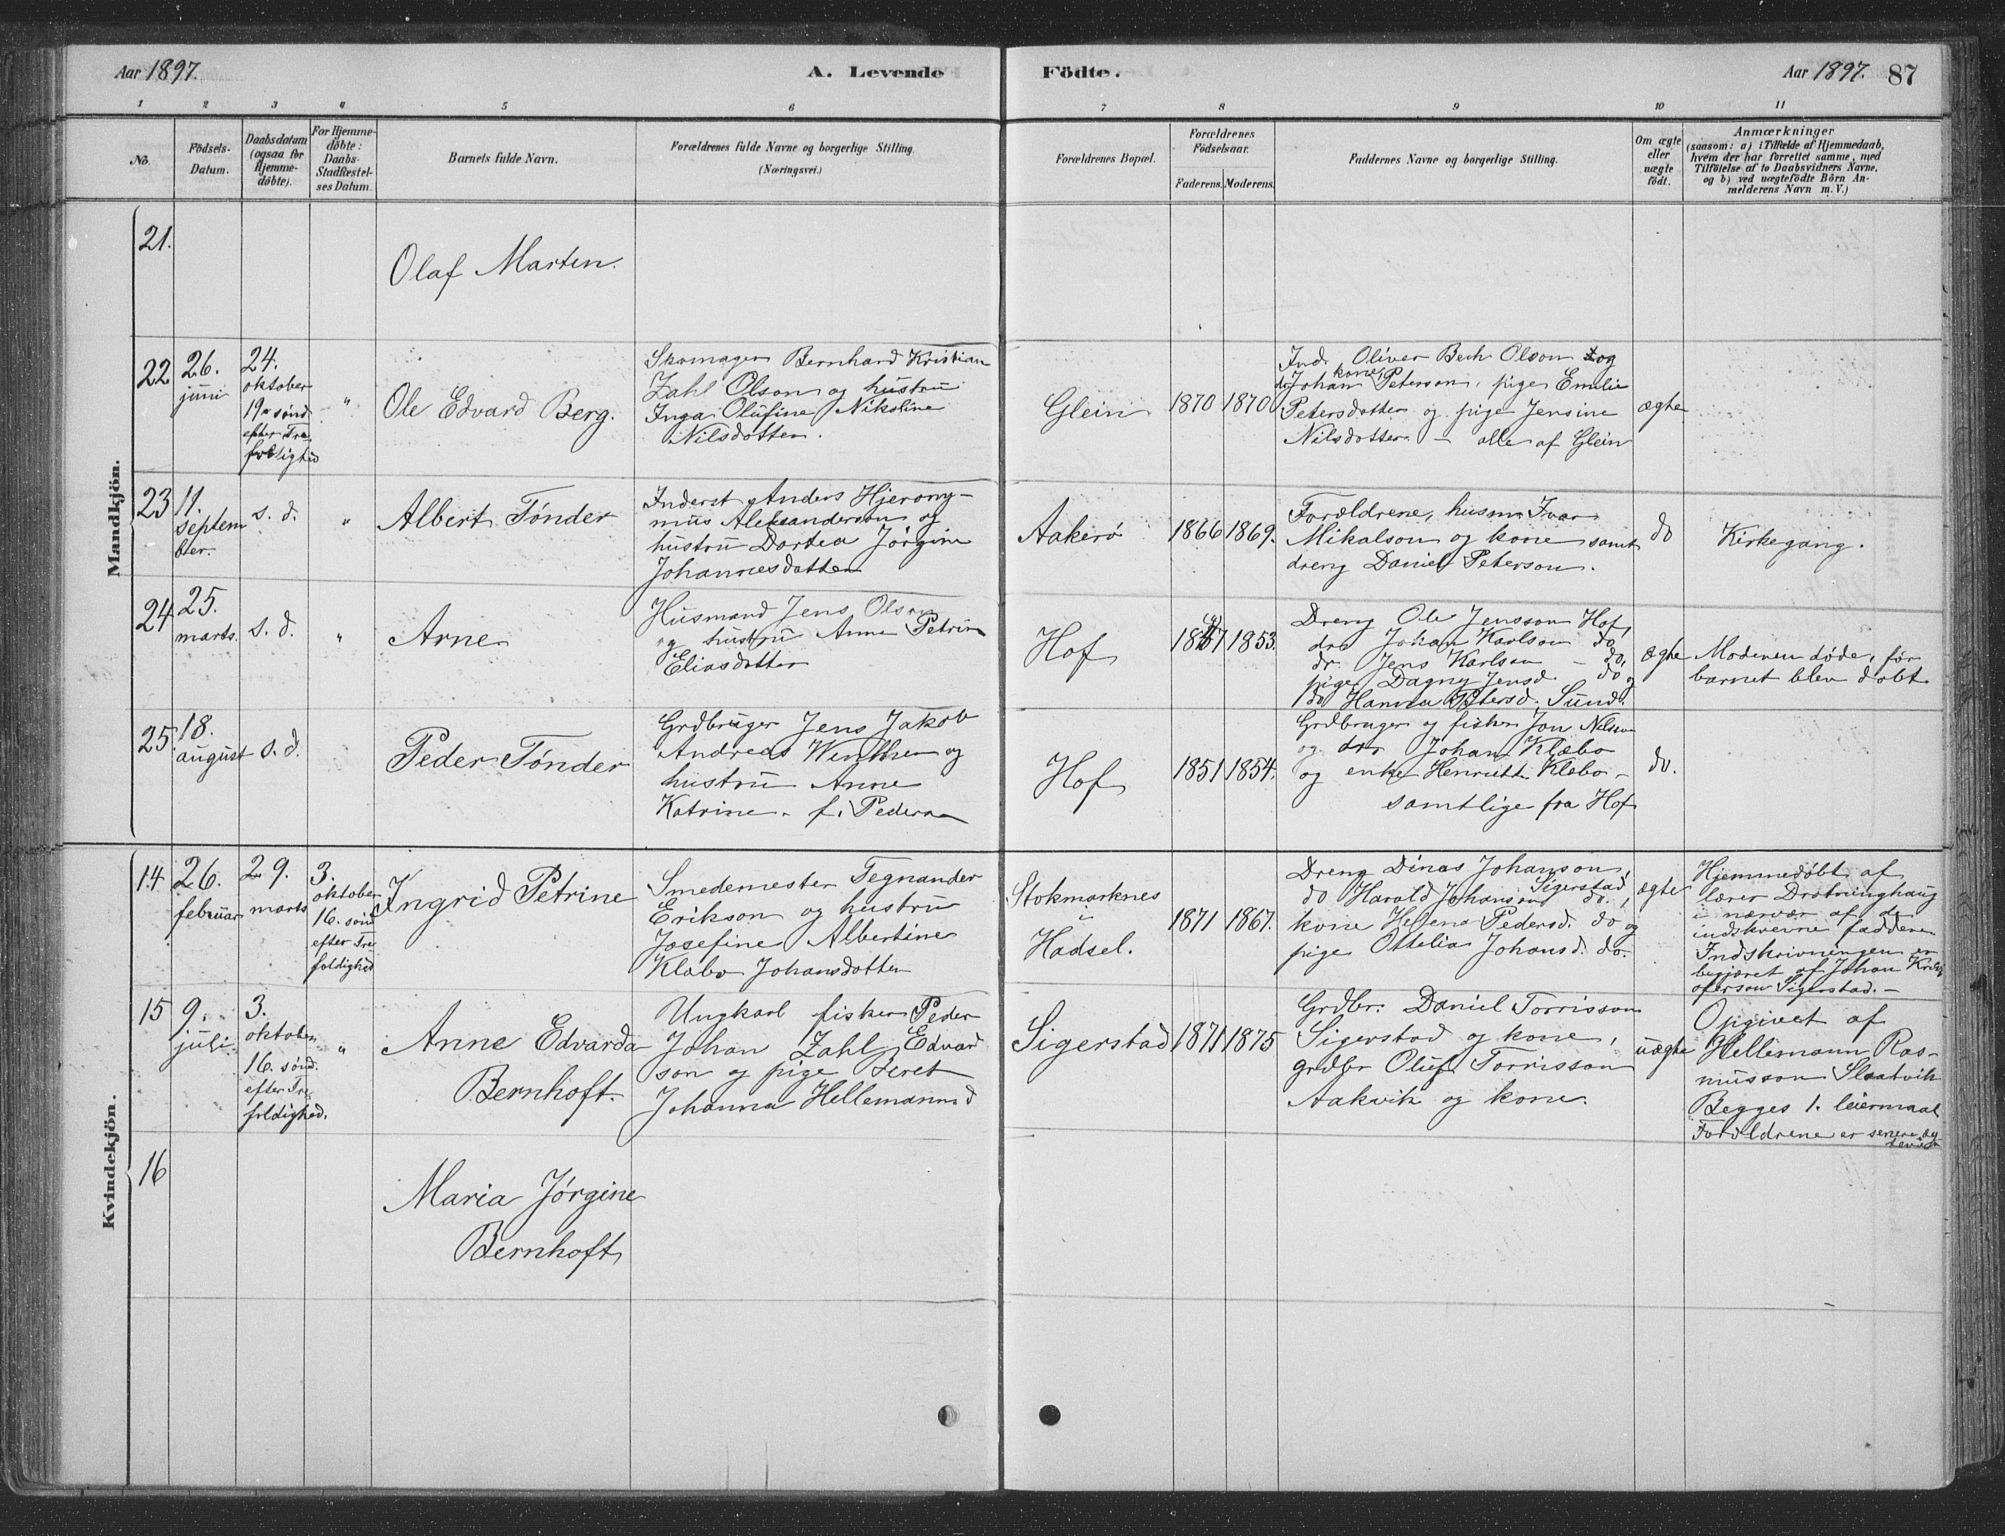 Aar 1897.
A. Levende
Födte.
Aar 1897. 87
1 2 3 4 5 6 7 8 9 10 11
No.
Födsels-
Datum.
Daabsdatum
(ogsaa for
Hjemme-
döbte).
For Hjemme-
döbte:
Daabs-
Stadfæstel-
ses Datum.
Barnets fulde Navn.
Forældrenes fulde Navne og borgerlige Stilling.
(Næringsvei.)
Forældrenes Bopæl.
Forældrenes
Födselsaar.
Faderens. Moderens.
Faddernes Navne og borgerlige Stilling.
Om ægte
eller
uægte
födt.
Anmærkninger
(saasom: a) i Tilfælde af Hjemmedaab,
hvem der har forrettet samme, med
Tilföielse af to Daabsvidners Navne,
og b) ved uægtefödte Börn An-
melderens Navn m. V.)
Mandkjön.
21.
Olaf Marten.
22
26.
juni
24.
oktober
19de sönd
efter Tre
foldighed
"
Ole Edvard Berg.
Skomager Bernhard Kristian
Zahl Olson og hustru
Inga Olufine Nikoline
Nilsdotter.
Glein
1870 1870
Ind. Oliver Bech Olson og
kone,
do Johan Peterson, pige Emilie
Petersdotter og pige Jensine
Nilsdotter. – alle af Glein
ægte
23
11.
septem
ber.
s. d.
"
Albert Tønder
Inderst Anders Hjerony-
mus Aleksanderson og
hustru Dortea Jørgine
Johannesdotter
Aakerø
1866 1869.
Forældrene, husm. Ivar
Mikalson og kone samt
dreng Daniel Peterson.
do
Kirkegang.
24
25.
marts.
s. d.
"
Arne
Husmand Jens Olson
og hustru Anne Petrine
Eliasdotter
Hof
1847 1853.
Dreng Ole Jensson Hof,
dr. Johan Karlson do
dr. Jens Karlson – do,
pige Dagny Jensd. do og
do Hanna Petersd. Sund.
ægte
Moderen døde, før
barnet blev døbt.
25.
18.
august
s. d.
Peder Tønder
Grdbruger Jens Jakob
Andreas Winther og
hustru Anne
Katrine. f. Pedersen
Hof
1851 1854.
Grdbruger og fisker Jon Nilson
og dr. Johan Klæbo
og enke Henriette Klæbo –
samtlige fra Hof
do.
Kvindekjön.
14.
26.
februar
29.
marts
3.
oktober
16. sönd
efter Tre
foldighed
Ingrid Petrine
Smedemester Tegnander
Erikson og hustru
Josefine Albertine
Klæbo Johansdotter
Stokmarknes
i
Hadsel.
1871 1867.
Dreng Dinas Johanson,
Sigerstad,
do Harald Johanson do.,
kone Helena Pedersd. do og
pige Ottelia Johansd. do.
ægte
Hjemmedøbt af
lærer Drotninghaug
i nærvær af de
indskrevne faddere
Indskrivningen er
begjæret af Johan Krist
oferson Sigerstad. –
15
9.
juli
3.
oktober
16. sönd.
efter Tre
foldighed.
"
Anne Edvarda
Bernhoft.
Ungkarl fisker Peder
Johan Zahl Edvard
son og pige Beret
Johanna Hellemannsd
Sigerstad
1871 1875
Grdbr. Daniel Torrisson
Sigerstad og kone,
grdbr Oluf Torrisson
Aakvik og kone.
uægte
Opgivet af
Hellemann Ras-
musson Slaatvik
Begges 1. leiermaal
Forældrene er senere
16
Maria Jørgine
Bernhoft